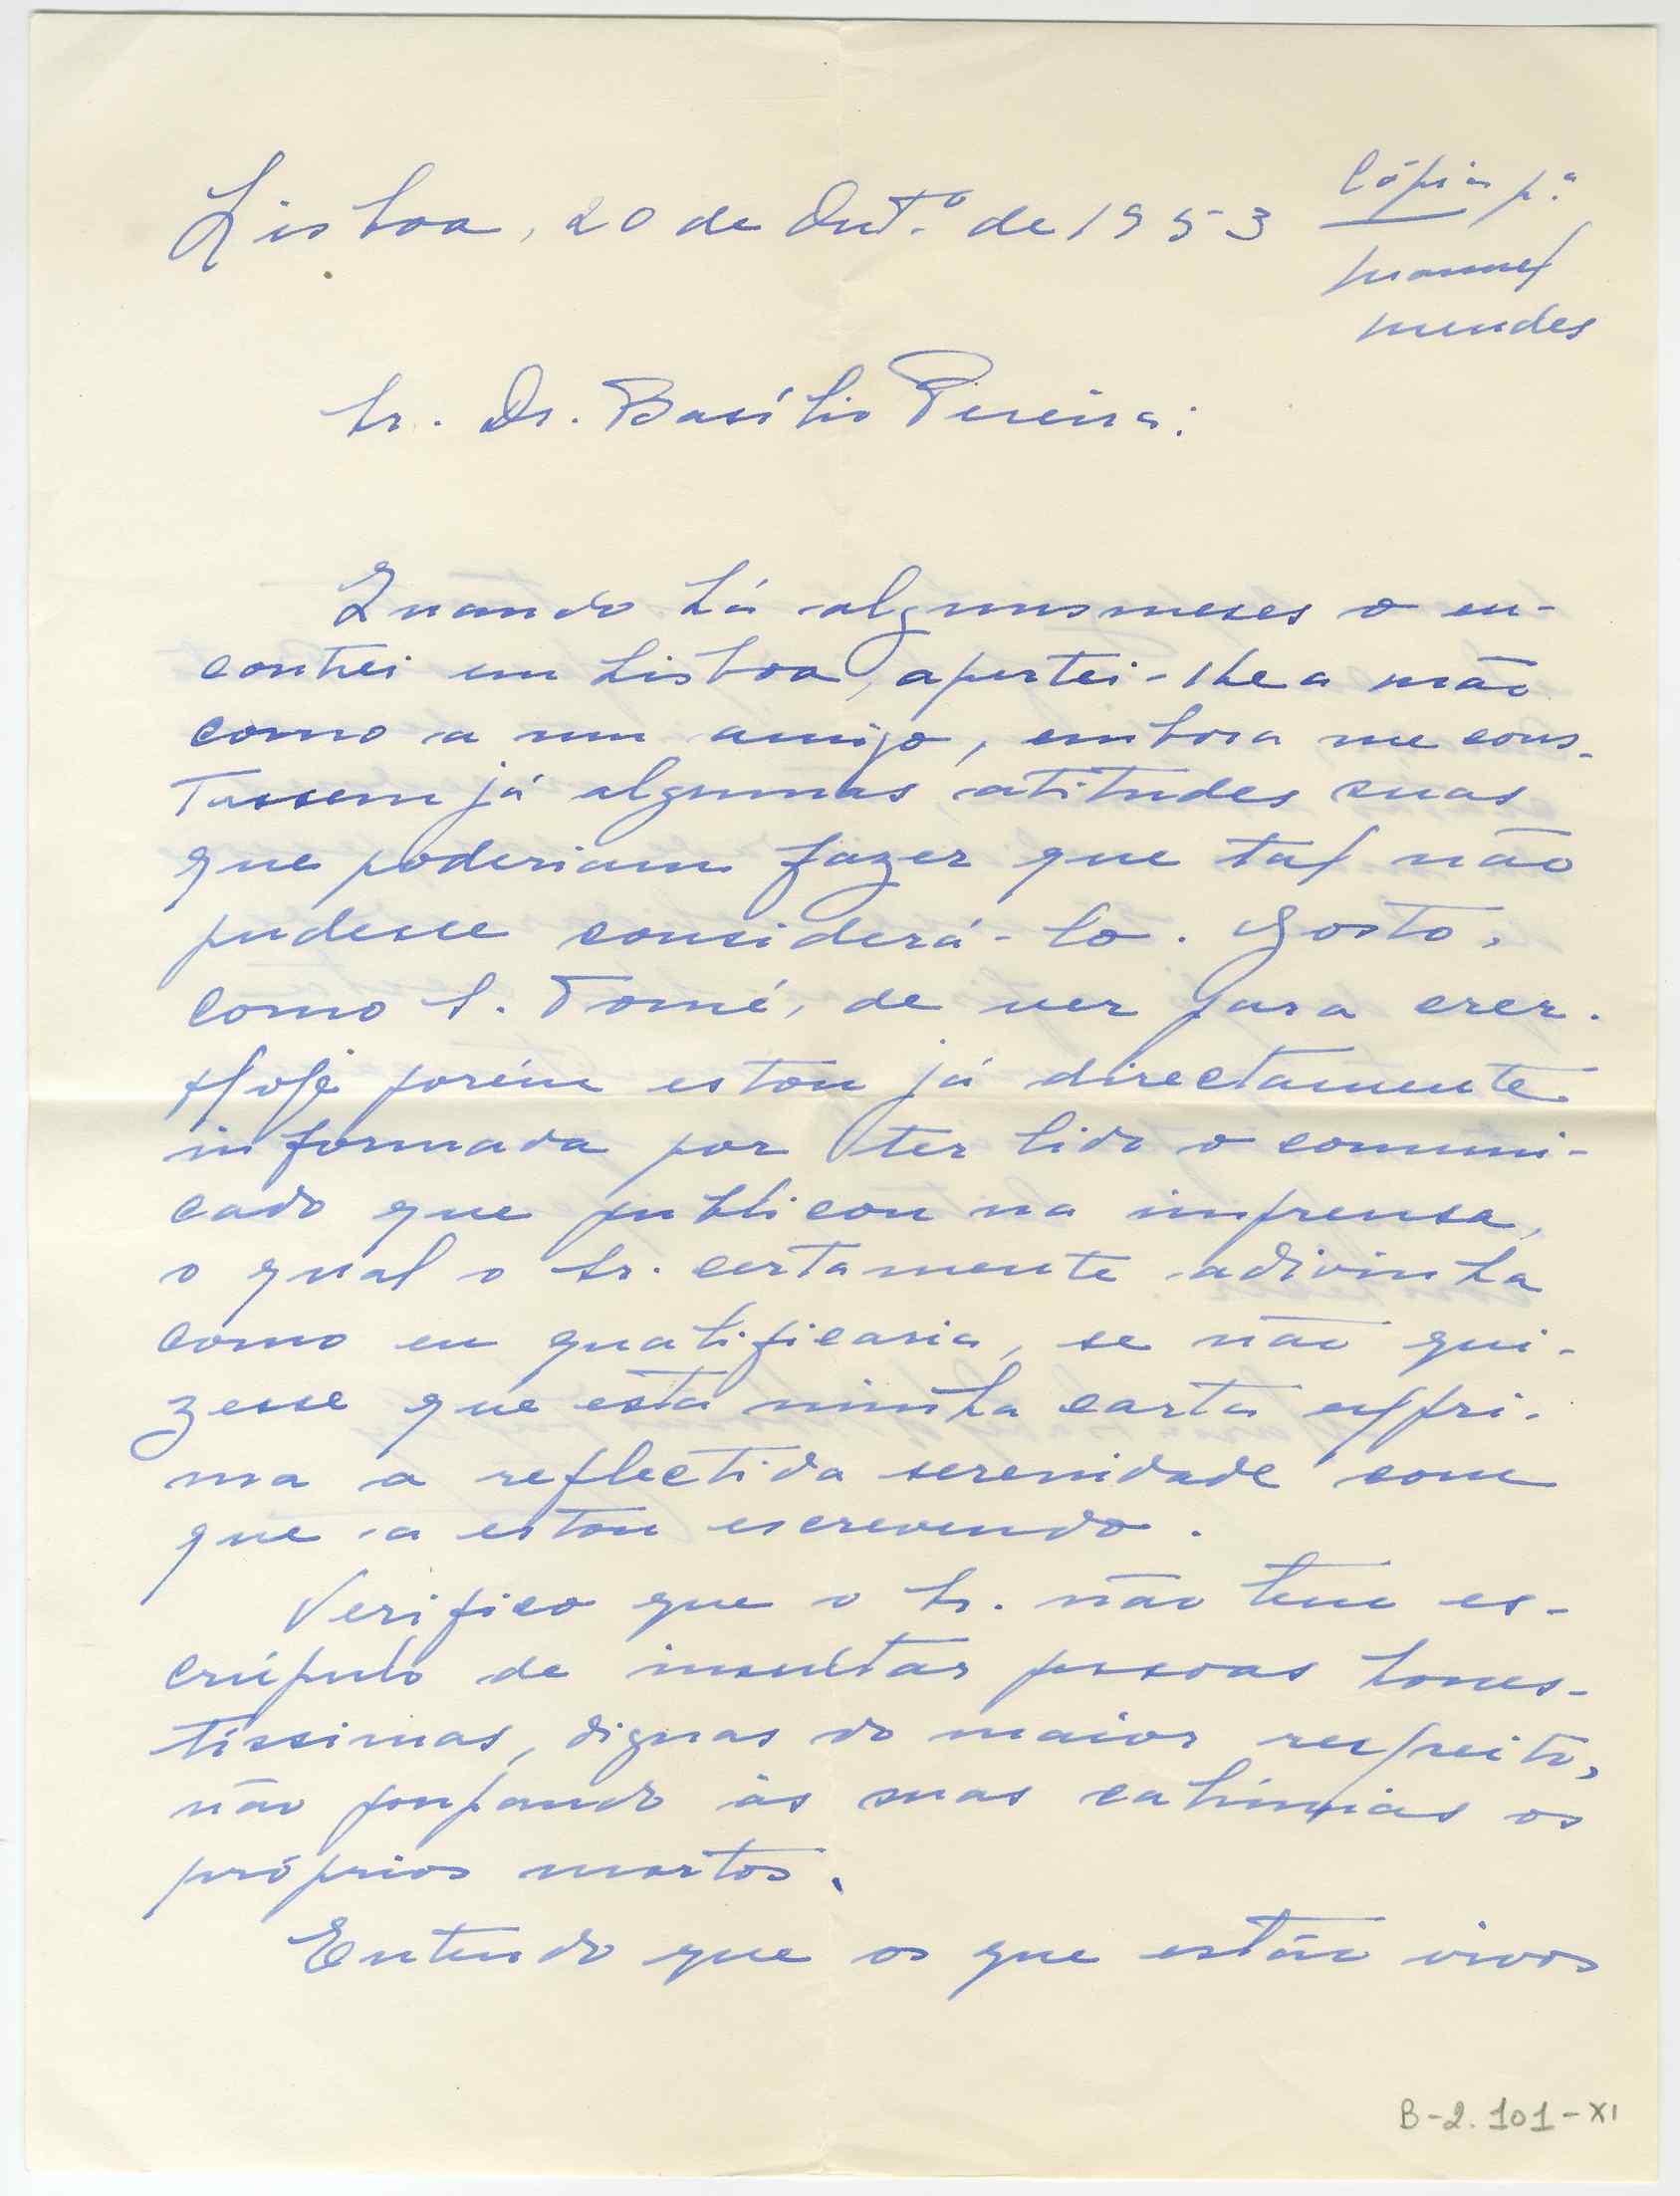 Lisboa, 20 de Outº de 1953
Cópia pª
Manuel
Mendes
Sr. Dr. Basílio Pereira:
Quando há alguns meses o en-
contrei em Lisboa, apertei-lhe a mão
como a um amigo, embora me cons-
tassem já algumas atitudes suas
que poderiam fazer que tal não
pudesse considerá-lo. Gosto,
como S. Tomé, de ver para crer.
Hoje porém estou já directamente
informada por ter lido o comuni-
cado que publicou na imprensa,
o qual o Sr. certamente adivinha
como eu qualificaria, se não qui-
zesse que esta minha carta expri-
ma a reflectida serenidade com
que a estou escrevendo.
Verifico que o Sr. não tem es-
crúpulo de insultar pessoas hones-
tíssimas, dignas do maior respeito,
não poupando às suas calúnias os
próprios mortos.
Entendo que os que estão vivos
B-2.101-XI